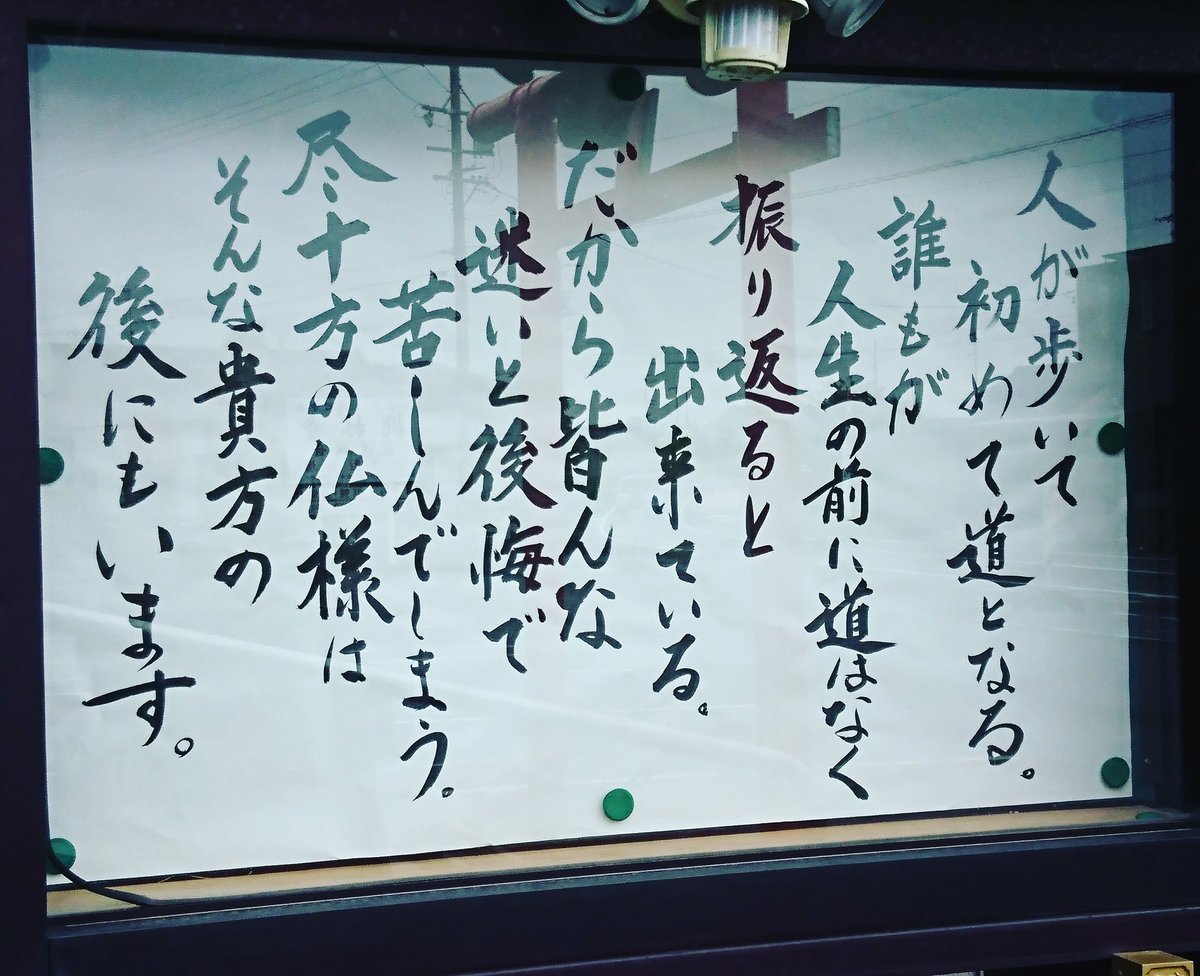 人が歩いて
初めて道となる。
誰もが
人生の前に道はなく
振り返ると
出来ている。
だから皆んな
迷いと後悔で
苦しんでしまう。
尽十方の仏様は
そんな貴方の
後にもいます。